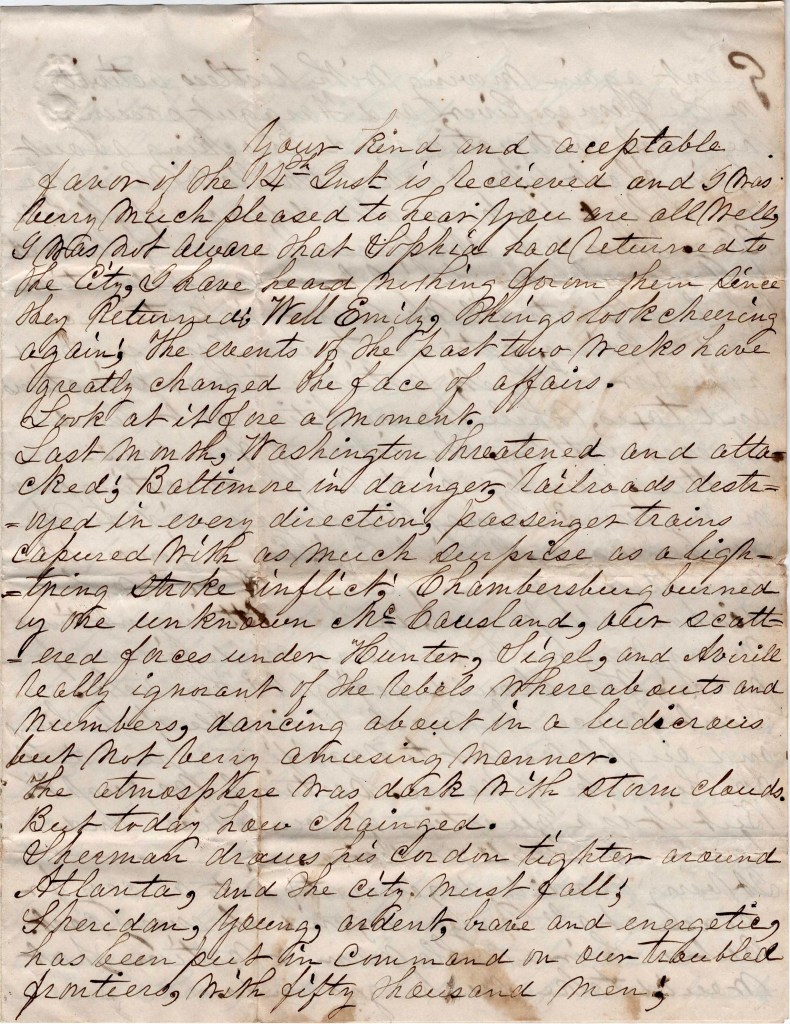 Your kind and aceptable
favor of the 14th Inst is receieved and I was
very much pleased to hear you are all well,
I was not aware that Sophia had returned to
the City, I have heard nothing forom them since
they returned; Well Emily, things look cheering
again; The events of the past two weeks have
greatly changed the face of affairs.
Look at it fore a moment.
Last month, Washington threatened and atta-
cked; Baltimore in dainger, railroads destr-
-oyed in every direction, passenger trains
capured with as much surprise as a ligh-
-tning stroke inflict; Chambersburg burned
by the unknown McCausland, our scatt-
-ered forces under Hunter, Sigel, and Avirill
really ignorant of the rebels whereabouts and
numbers, dancing about in a ludicrous
but not very amusing manner.
The atmosphere was dark with storm clouds.
But today how chainged.
Sherman draws his cordon tighter around
Atlanta, and the city must fall;
Sheridan, young, ardent, brave and energetic,
has been put in command on our troubled
frontiers, with fifty thousand men;